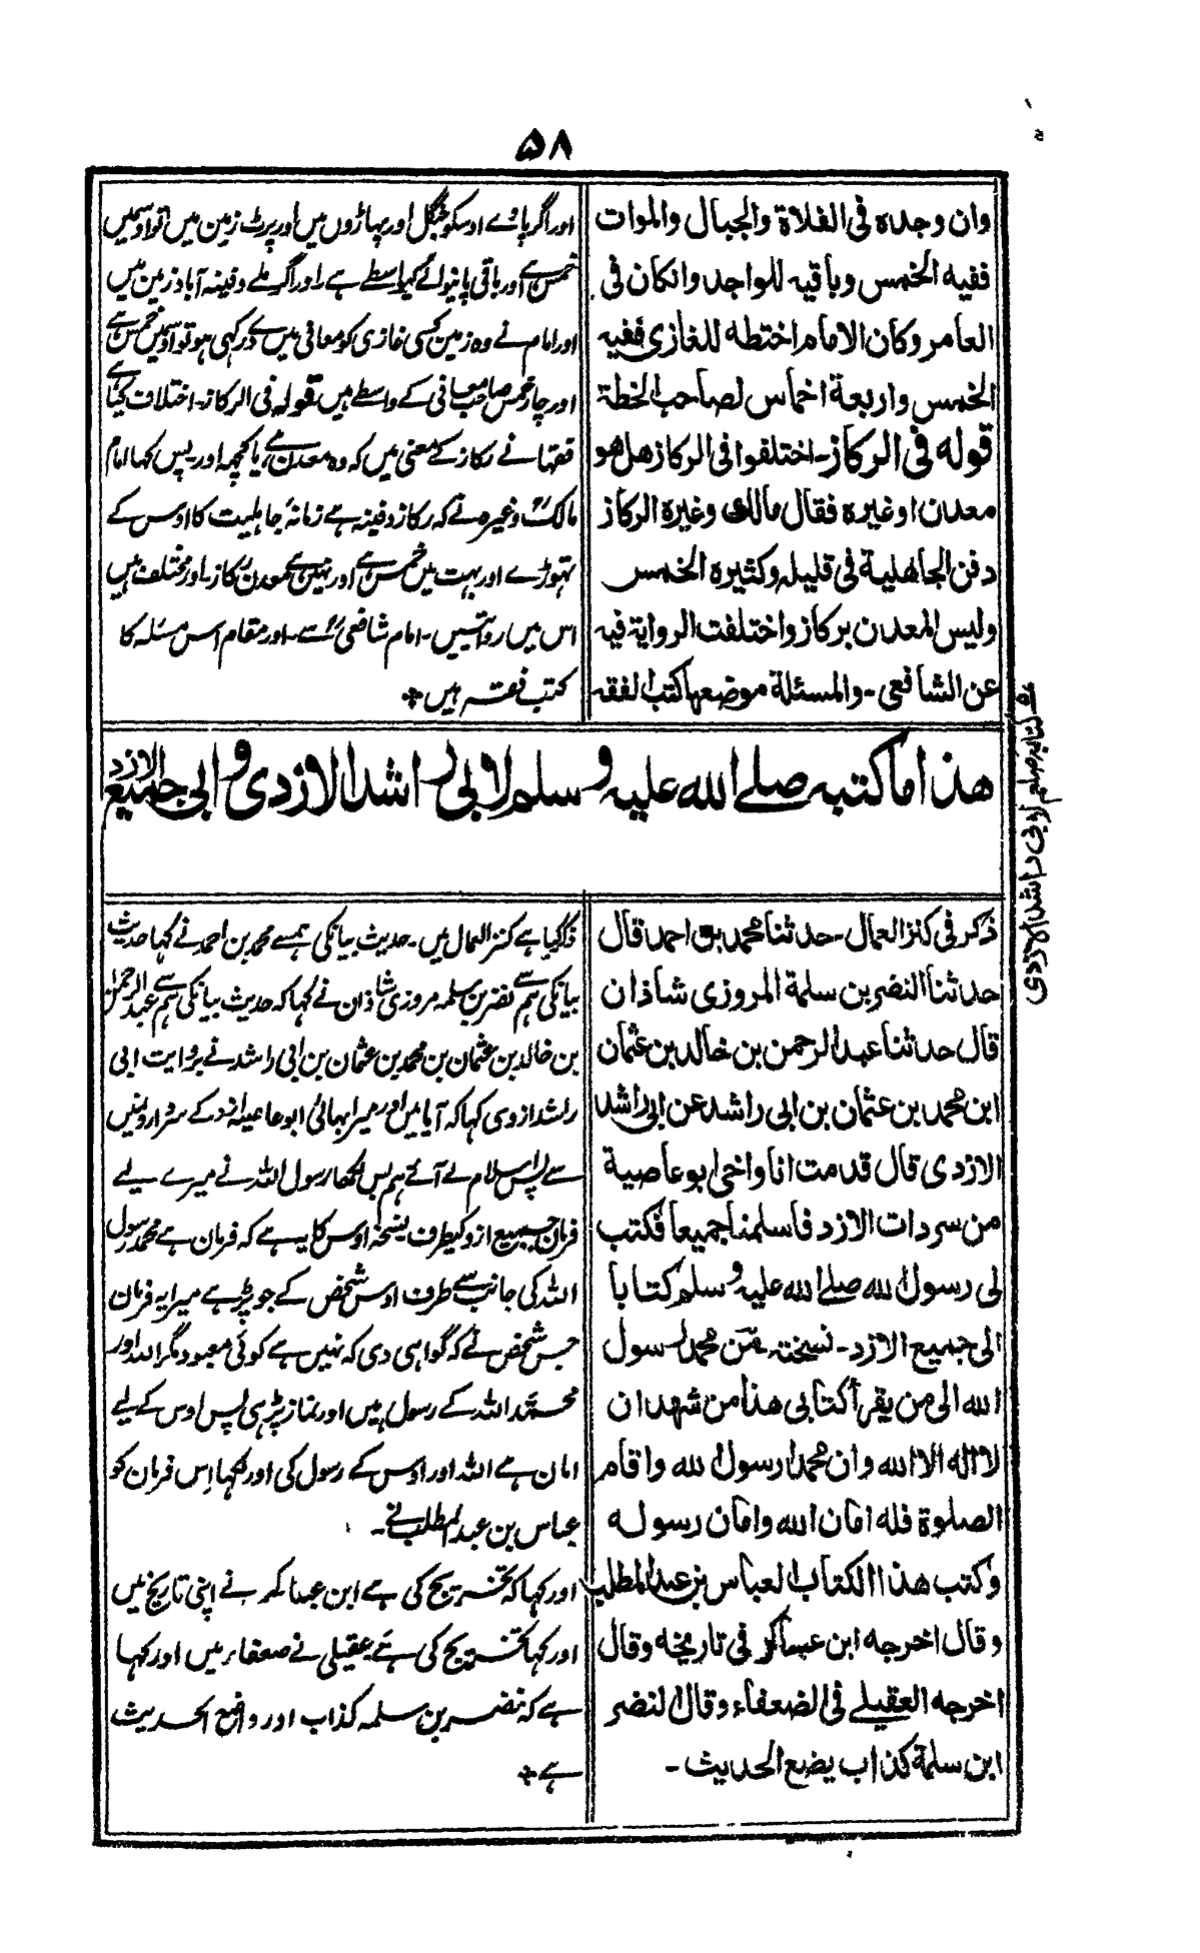 ۵۸
وان وجده فی الفلاة والجبال والموات
ففیه الخمس وباقیه للواجد وانکان فی
العامر وکان الامام اختطه للغازی ففیه
الخمس واربعة اخماس لصاحب الخطة
قوله فی الرکاز۔ اختلفوا فی الرکاز هل هو
معدن اوغیره فقال مالك وغیره الرکاز
دفن الجاهلیة فی قلیله وکثیره الخمس
ولیس المعدن برکاز واختلفت الروایة فیه
عن الشافعی۔ والمسئلة موضعها کتب الفقه
اور اگر پائے اوسکو جنگل اور پہاڑوں میں اور پرٹ زمین میں تو اوسمیں
خمس ہے اور باقی پانیوالے کیواسطے ہے اور اگر ملے دفینہ آباد زمین میں
اور امام نے وہ زمین کسی غازی کو معافی میں دے رکہی ہو تو اوسمیں خمس ہے
اور چار خمس صاحب معافی کے واسطے ہیں قوله فی الرکاز۔ اختلاف کیا ہے
فقہا نے رکاز کے معنی میں کہ وہ معدن ہے یا کچہہ اور پس کہا امام
مالکؒ وغیرہ نے کہ رکاز دفینہ ہے زمانۂ جاہلیت کا اوس کے
تہوڑے اور بہت میں خمس ہے اور نہیں ہے معدن رکاز۔ اور مختلف ہیں
اس میں روایتیں۔ امام شافعیؒ سے۔ اور مقام اس مسئلہ کا
کتب فقہ ہیں+
هذا ما کتبه صلے الله علیه وسلم لابی راشد الازدی وابی جمیع الازد
کتابه صلعم لابی راشد الازدی
ذکر فی کنز العمال۔ حدثنا محمد بن احمد قال
حدثنا النضر بن سلمة المروزی شاذان
قال حدثنا عبد الرحمن بن خالد بن عثمان
ابن محمد بن عثمان بن ابی راشد عن ابی راشد
الازدی قال قدمت انا واخی ابو عاصیة
من سردات الازد فاسلمنا جمیعا فکتب
لی رسول الله صلے الله علیه وسلم کتابا
الی جمیع الازد۔ نسخته من محمد رسول
الله الی من یقرأ کتابی هذا من شهد ان
لا اله الا الله وان محمدا رسول الله واقام
الصلوة فله امان الله وامان رسوله
وکتب هذا الکتاب العباس بن عبد المطلب
وقال اخرجه ابن عساکر فی تاریخه وقال
اخرجه العقیلے فی الضعفاء وقال النضر
ابن سلمة کذاب یضع الحدیث۔
ذکر کیا ہے کنز العمال میں۔ حدیث بیانکی ہمسے محمد بن احمد نے کہا حدیث
بیانکی ہم سے نضر بن سلمہ مروزی شاذان نے کہا کہ حدیث بیانکی ہم سے عبد الرحمن
بن خالد بن عثمان بن محمد بن عثمان بن ابی راشد نے بروایت ابی
راشد ازدی کہا کہ آیا میں اور میرا بہائی ابو عاصیہ ازد کے سردارونمیں
سے پس اسلام لے آئے ہم پس لکھا رسول اللہ نے میرے لیے
فرمان جمیع ازد کیطرف نسخہ اوس کا یہ ہے کہ فرمان ہے محمد رسول
اللہ کی جانب سے طرف اوس شخص کے جو پڑہے میرا یہ فرمان
جس شخص نے کہ گواہی دی کہ نہیں ہے کوئی معبود مگر اللہ اور
محمد اللہ کے رسول ہیں اور نماز پڑہی پس اوس کے لیے
امان ہے اللہ اور اوس کے رسول کی اور لکھا اِس فرمان کو
عباس بن عبد المطلب نے۔
اور کہا کہ تخریج کی ہے ابن عساکر نے اپنی تاریخ میں
اور کہا تخریج کی ہے عقیلی نے ضعفاء میں اور کہا
ہے کہ نضر بن سلمہ کذاب اور واضع الحدیث
ہے+